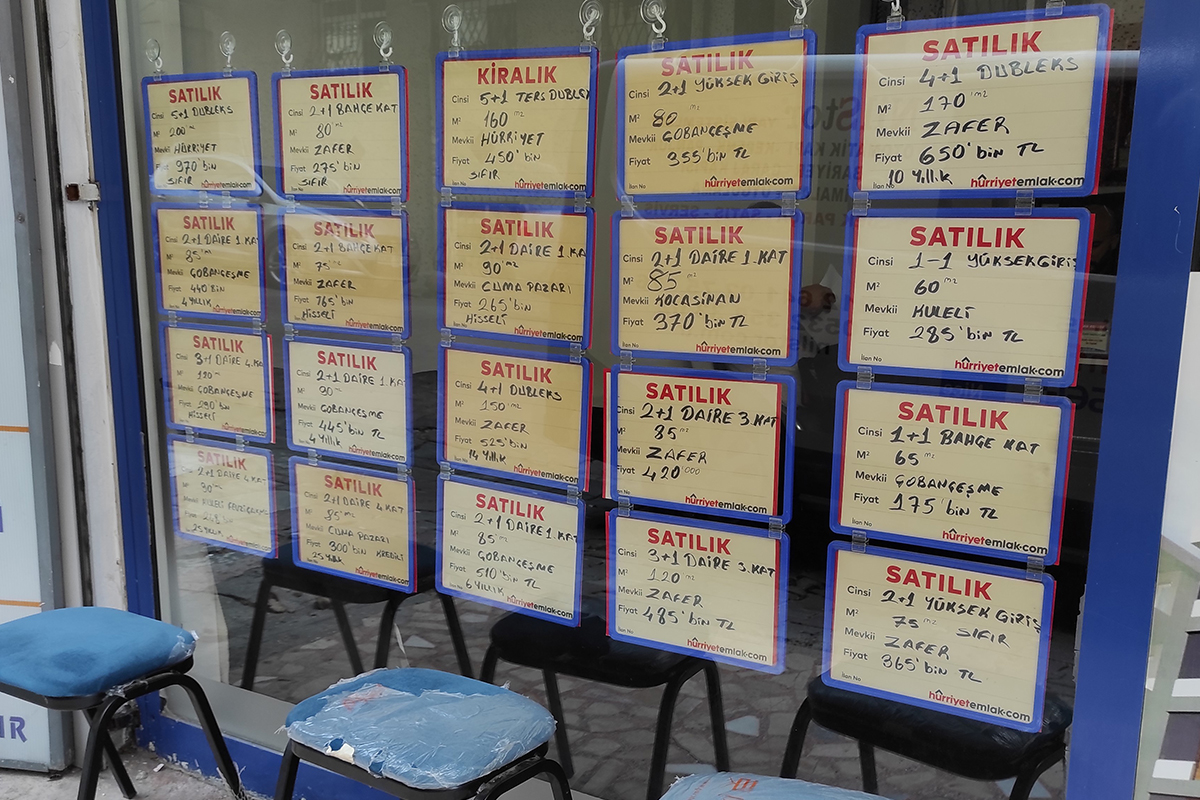 SATILIK
Cinsi 5+1 DUBLEKS
M² 200 m2
Mevkii HÜRRİYET
970'bin
SIFIR
SATILIK
Cinsi 2+1 BAHÇE KAT
M² 80 m2
Mevkii ZAFER
Fiyat 275'bin
SIFIR
hürriyetemlak.com
KİRALIK
Cinsi 5+1 TERS DUBLEX
M² 160 m2
Mevkii HÜRRİYET
Fiyat 450'bin
SIFIR
hürriyetemlak.com
SATILIK
Cinsi 2+1 YÜKSEK GİRİŞ
M² 80 m2
Mevkii ÇOBANÇEŞME
Fiyat 355'bin TL
İlan No
hürriyetemlak.com
SATILIK
Cinsi 4+1 DUBLEKS
M² 170 m2
Mevkii ZAFER
Fiyat 650'bin TL
İlan No 10 Yıllık
hürriyetemlak.com
SATILIK
Cinsi 2+1 DAİRE 1.KAT
M² 85 m2
Mevkii ÇOBANÇEŞME
Fiyat 440 BİN
4 YILLIK
SATILIK
Cinsi 2+1 BAHÇE KAT
M² 75 m2
Mevkii ZAFER
Fiyat 165'bin
HİSSELİ
hürriyetemlak.com
SATILIK
Cinsi 2+1 DAİRE 1.KA
M² 90 m2
Mevkii CUMA PAZARI
Fiyat 265'bin
HİSSELİ
hürriyetemlak.com
SATILIK
Cinsi 2+1 DAİRE 1.KAT
M² 85 m2
Mevkii KOCASİNAN
Fiyat 370'bin TL
İlan No
hürriyetemlak.com
SATILIK
Cinsi 1-1 YÜKSEKGİRİŞ
M² 60 m2
Mevkii KULELİ
Fiyat 285'bin TL
İlan No
hürriyetemlak.com
SATILIK
Cinsi 3+1 DAİRE 4.KA
M² 120 m2
Mevkii ÇOBANÇEŞME
Fiyat 290'bin
HİSSELİ
SATILIK
Cinsi 2+1 DAİRE 1.KA
M² 90 m2
Mevkii ÇOBANÇEŞME
Fiyat 445'bin TL
4 Yıllık
hürriyetemlak.com
SATILIK
Cinsi 4+1 DUBLEKS
M² 150 m2
Mevkii ZAFER
Fiyat 525'bin
14 Yıllık
hürriyetemlak.com
SATILIK
Cinsi 2+1 DAİRE 3.KAT
M² 85 m2
Mevkii ZAFER
Fiyat 420.000
hürriyetemlak.com
SATILIK
Cinsi 1+1 BAHÇE KAT
M² 65 m2
Mevkii ÇOBANÇEŞME
Fiyat 175'bin TL
İlan No
hürriyetemlak.com
SATILIK
2+1 DAİRE 4.KAT
25 YILLIK
SATILIK
Cinsi 2+1 DAİRE 4.KAT
M² 85 m2
Mevkii CUMA PAZARI
Fiyat 300'bin KREDİLİ
25 Yıllık
hürriyetemlak.com
SATILIK
Cinsi 2+1 DAİRE 1.KAT
M² 85 m2
Mevkii ÇOBANÇEŞME
Fiyat 510'bin TL
6 YILLIK
hürriyetemlak.com
SATILIK
Cinsi 3+1 DAİRE 3.KAT
M² 120 m2
Mevkii ZAFER
Fiyat 485'bin TL
İlan No
hürriyetemlak.com
SATILIK
Cinsi 2+1 YÜKSEK GİRİŞ
M² 75 m2 SIFIR
Mevkii ZAFER
Fiyat 365'bin TL
İlan No
hürriyetemlak.com